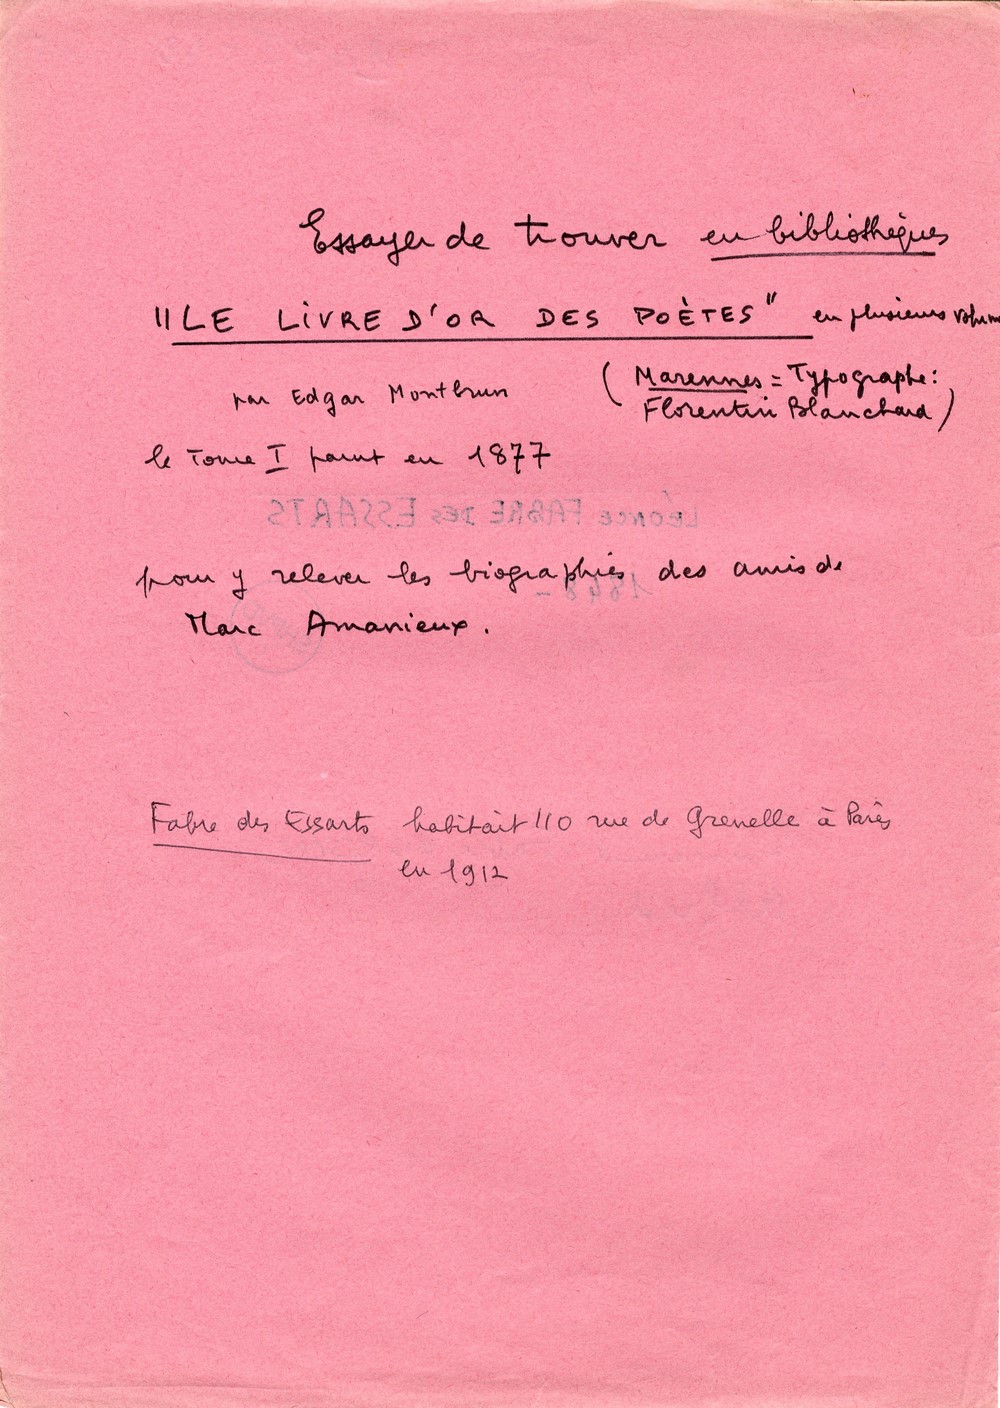 Essayer de trouver en bibliothèques
"LE LIVRE D'OR DES POÈTES" en plusieurs volumes
par Edgar Montbrun
(Marennes = Typographe:
Florentin Blanchard)
le Tome I parut en 1877
Léonce FABRE DES ESSARTS
pour y relever les biographies des amis de
1848 -
Marc Amanieux.
Fabre des Essarts habitait 110 rue de Grenelle à Paris
en 1912